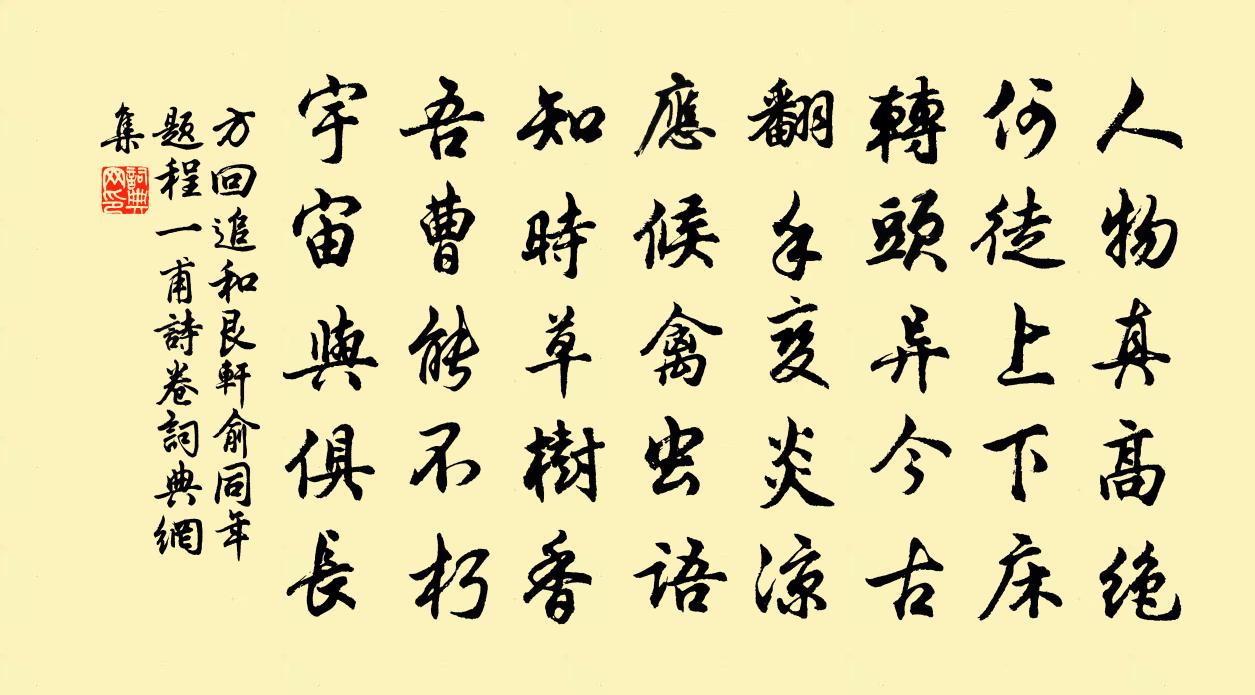 人物真高绝
何徒上下床
轉頭异今古
翻手变炎凉
應候禽虫语
知時草樹香
吾曹能不朽
宇宙與俱長
方回追和艮軒俞同年
题程一甫詩卷詞典網
集
詞典
网印